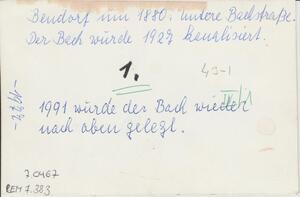 Bendorf um 1880: untere Bachstraße.
Der Bach würde 1927 kanalisiert.
1.
1991 würde der Bach wieder
nach oben gelegt.
7.0467
REM 7.383